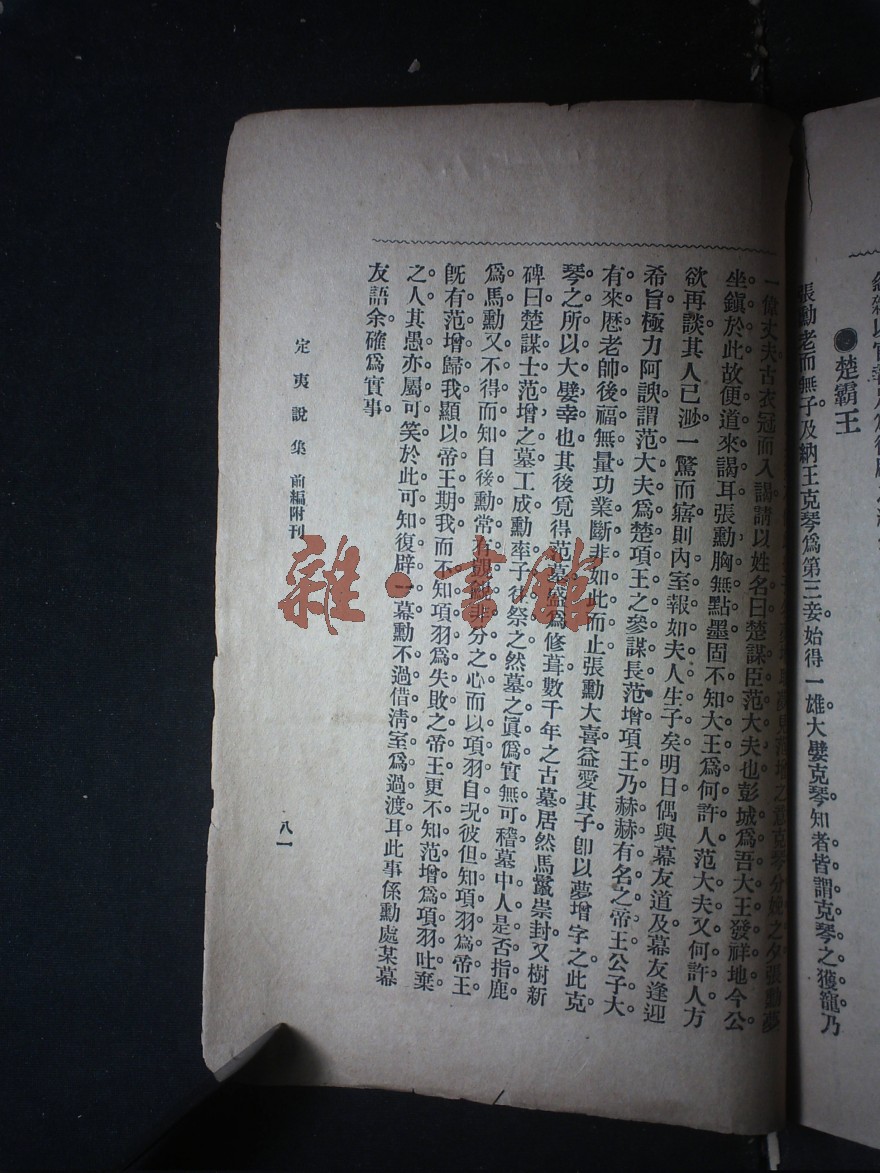 ●楚霸王
張勳老而無子及納王克琴爲第三妾始得一雄大嬖克琴知者皆謂克琴之獲寵乃
克琴分娩之夕張勳夢
一偉丈夫古衣冠而入謁請以姓名曰楚謀臣范大夫也彭城爲吾大王發祥地今公
坐鎭於此故便道來謁耳張勳胸無點墨固不知大王爲何許人范大夫又何許人方
欲再談其人已渺一驚而寤則內室報如夫人生子矣明日偶與幕友道及幕友逢迎
希旨極力阿諛謂范大夫爲楚項王之參謀長范增項王乃赫赫有名之帝王公子大
有來歷老帥後福無量功業斷非如此而止張勳大喜益愛其子卽以夢增字之此克
琴之所以大嬖幸也其後覓得范墓盛爲修葺數千年之古墓居然馬鬣崇封又樹新
碑曰楚謀士范增之墓工成勳率子往祭之然墓之眞僞實無可稽墓中人是否指鹿
爲馬勳又不得而知自後勳常有覬覦非分之心而以項羽自況彼但知項羽爲帝王
旣有范增歸我顯以帝王期我而不知項羽爲失敗之帝王更不知范增爲項羽吐棄
之人其愚亦屬可笑於此可知復辟一幕勳不過借淸室爲過渡耳此事係勳處某幕
友語余確爲實事
定夷說集 前編附刊
八一
雜·書館